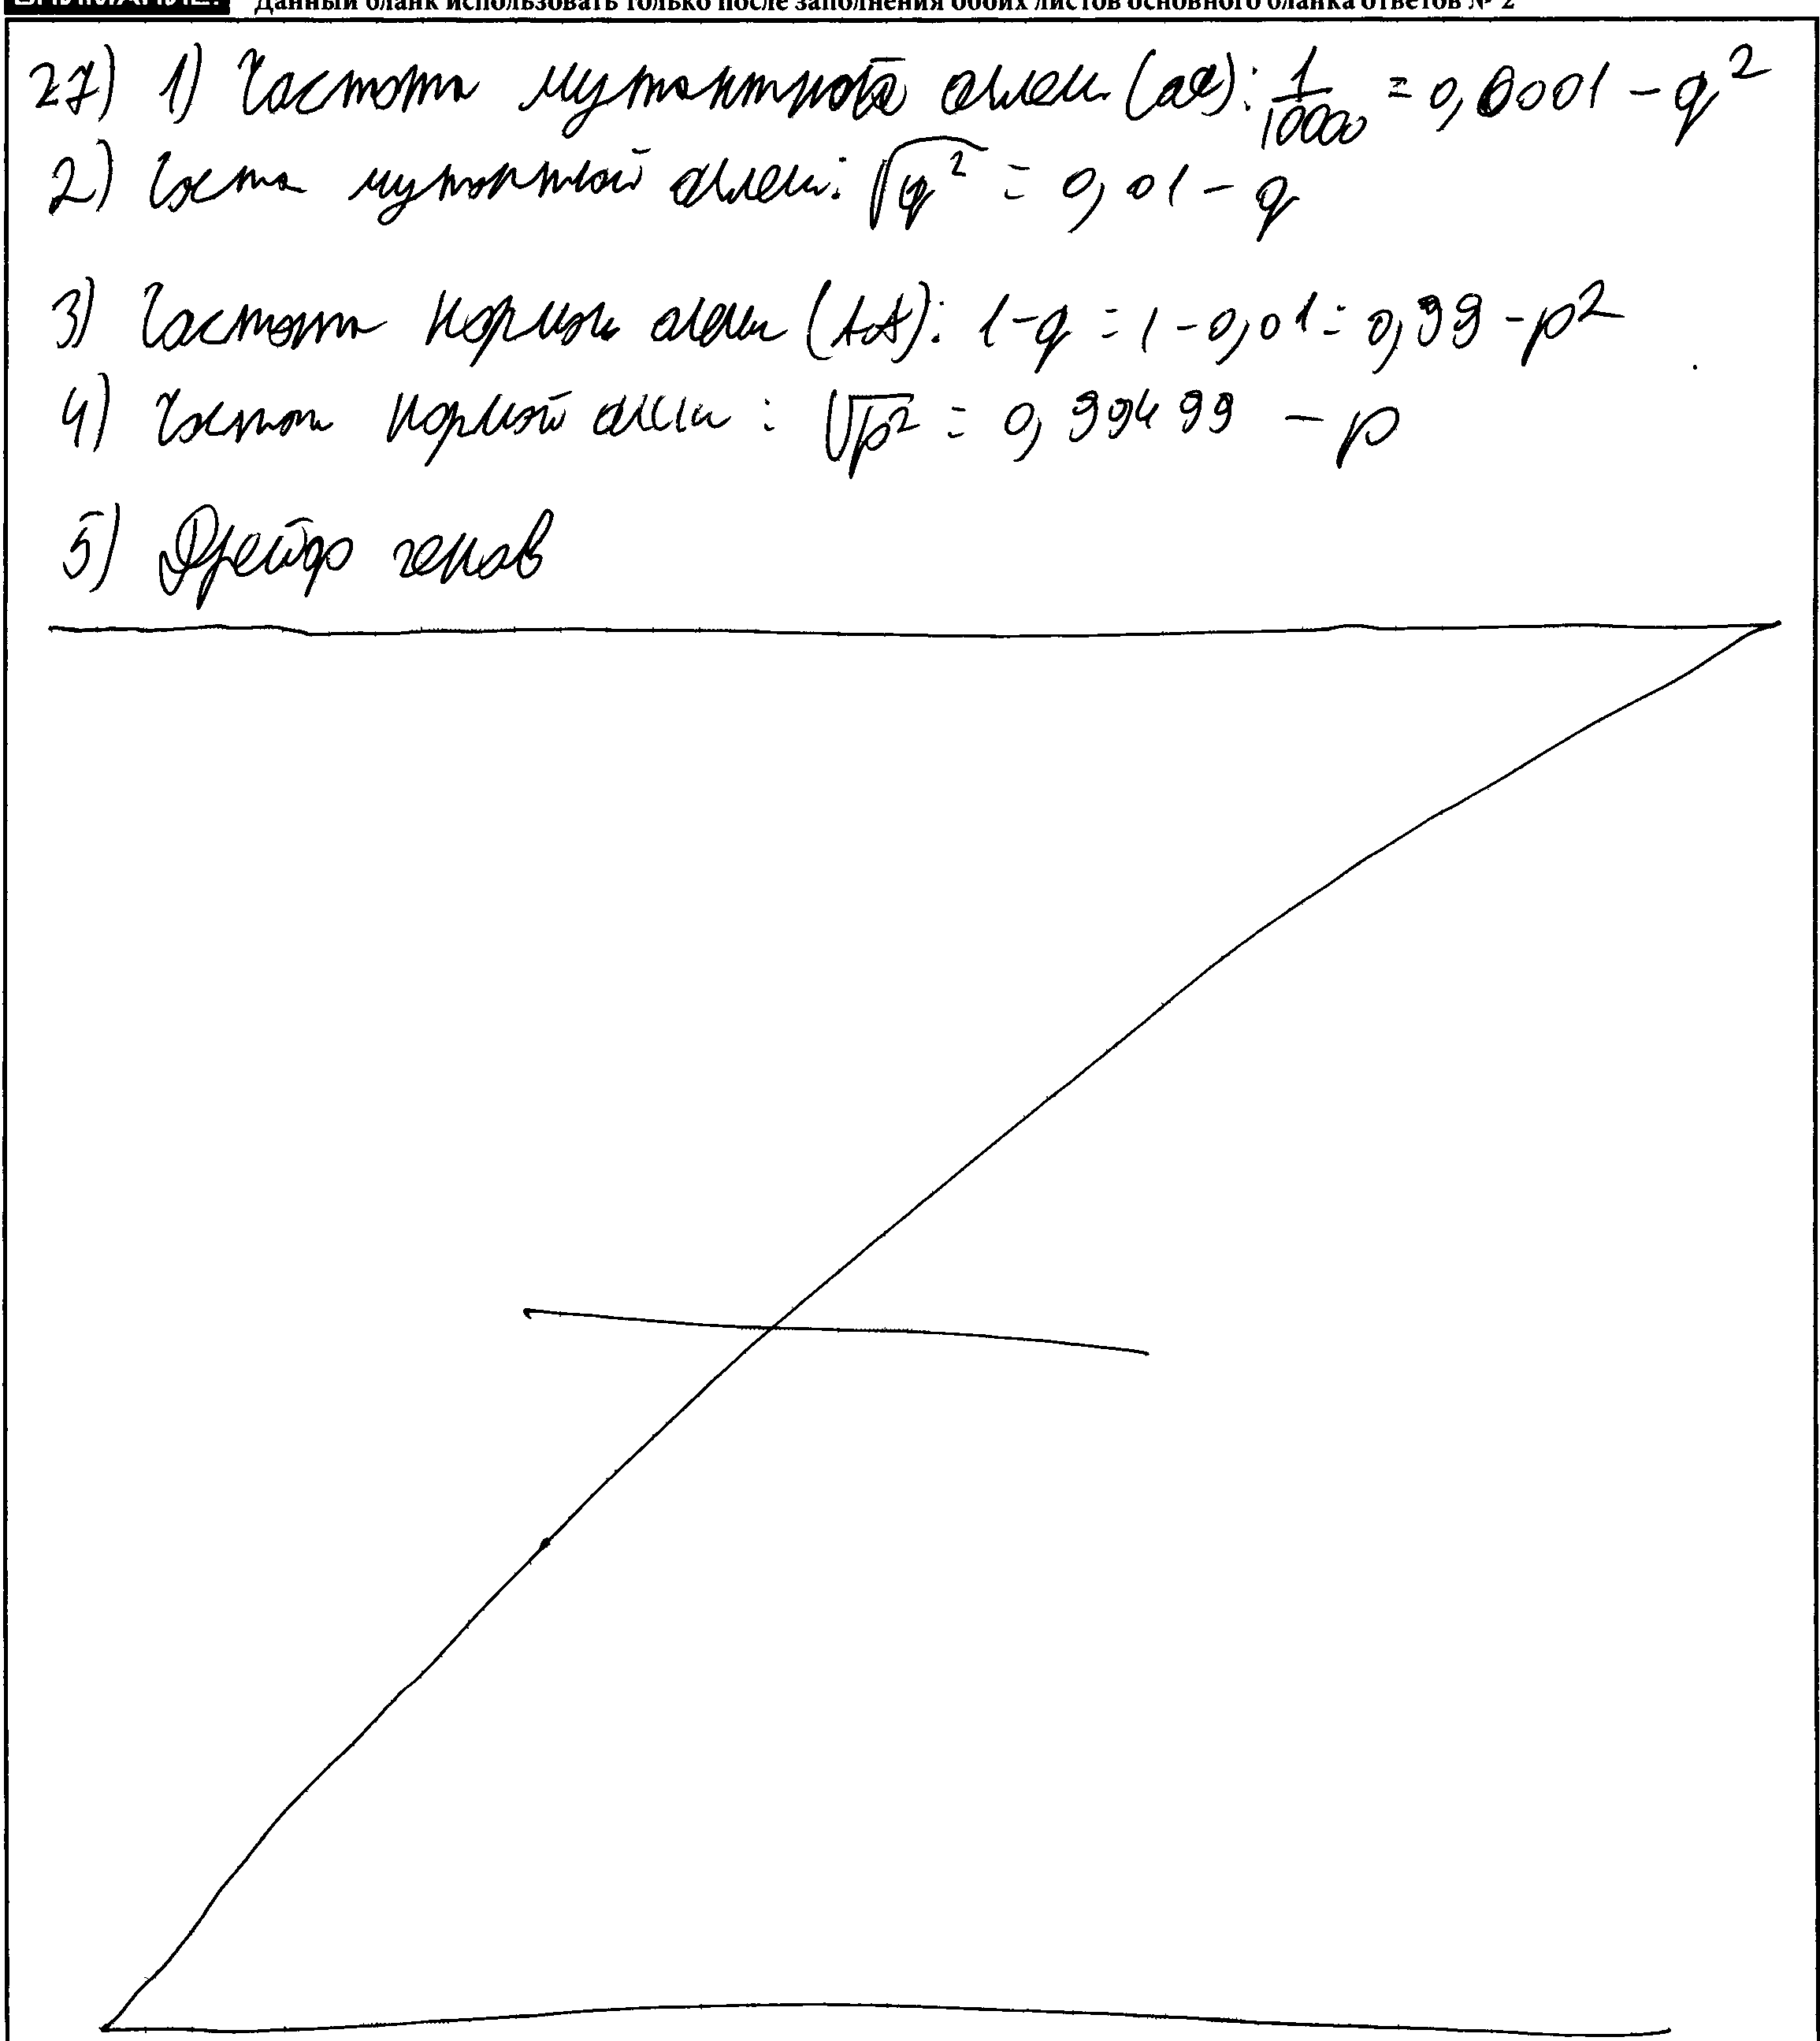 ВНИМАНИЕ! Данный бланк использовать только после заполнения обоих листов основного бланка ответов № 2
27) 1) Частота мутантной аллели (aa): 1/10000 = 0,0001 - q²
2) Часта мутантной аллели: √q² = 0,01 - q
3) Частота нормаль аллели (AA): 1-q = 1-0,01 = 0,99 - p²
4) Частот нормой аллели: √p² = 0,99499 - p
5) Дрейф генов